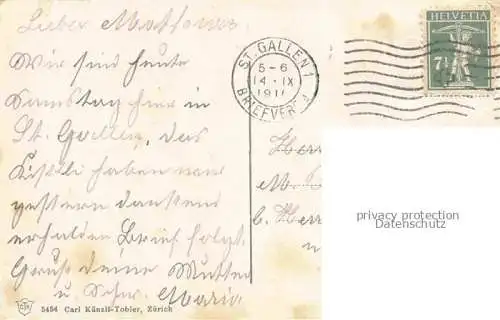 Lieber
Wir sind heute
Samstag hier in
St. Gallen, das
Kistli haben wir
gestern dankend
erhalten Brief folgt.
Gruss deine Mutter
u. Schw. Maria
5454 Carl Künzli-Tobler, Zürich
ST. GALLEN 1
5-6
14. IX
191
BRIEFVERS. A
HELVETIA
7½
Herr
M.
b. Herr
privacy protection
Datenschutz